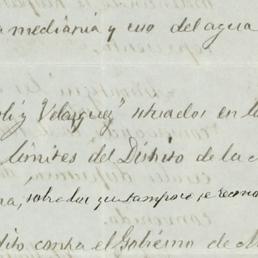 a mediania y uso del agua
oli y Velazquez" situados en la
limites del Distrito de la c
na, sobre los que tampoco se recono
dito contra el Gobierno de